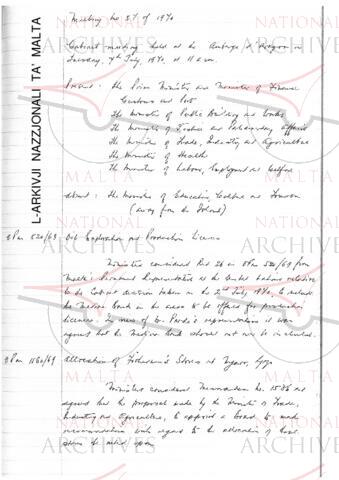 Meeting No 37 of 1970
Cabinet meeting held at the Auberge d'Aragon on
Tuesday, 7th July, 1970, at 11 a.m.
Present: The Prime Minister and Minister of Finance
Customs and Port
The Minister of Public Building and Works
The Minister of Justice and Parliamentary Affairs
The Minister of Trade, Industry and Agriculture
The Minister of Health
The Minister of Labour, Employment and Welfare
Absent: The Minister of Education, Culture and Tourism
(away from the Island)
OPM 520/69 Oil Exploration and Production Licence
Ministers considered Red 26 in OPM 520/69 from
Malta's Permanent Representative at the United Nations relative
to the Cabinet decision taken on the 2nd July, 1970, to include
the Medina Bank in the area to be offered for production
licences. In view of Dr. Pardo's representations it was
agreed that the Medina Bank should not now be included.
OPM 1160/69 Allocation of Fishermen's Stores at Mgarr, Gozo
Ministers considered Memorandum No. 1586 and
agreed that the proposal made by the Minister of Trade,
Industry and Agriculture, to appoint a Board to make
recommendations with regard to the allocation of these
stores be acted upon.
L-ARKIVJI NAZZJONALI TA' MALTA
NATIONAL
ARCHIVES